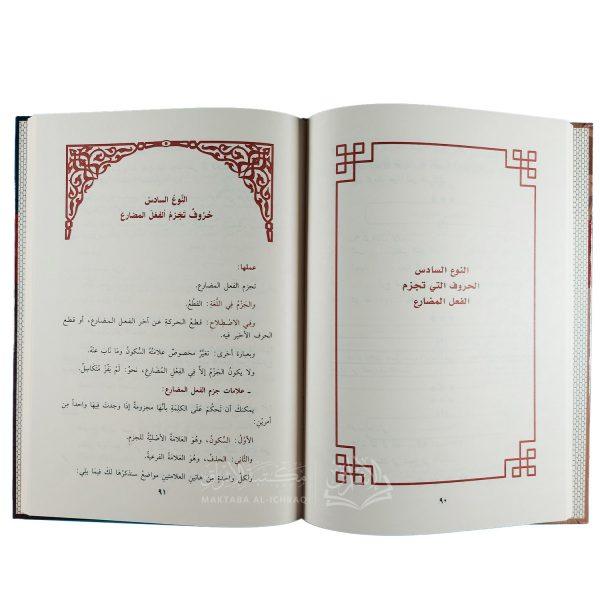 النوع السادس
الحروف التي تجزم
الفعل المضارع
٩٠
النَّوعُ السادسُ
حُرُوفٌ تَجْزِمُ الفعلَ المضارع
عملها:
تجزم الفعل المضارع.
والجَزْمُ فِي اللُّغَةِ: القَطْعُ.
وفي الاصْطِلاح: قطعُ الحركة عن آخر الفعل المضارع، أو قطع
الحرف الأخير فيه.
وبعبارة أخرى: تغيُّرٌ مخصوصٌ علامتُهُ السُّكونُ وَمَا نَابَ عنهُ.
ولا يكونُ الجَزْمُ إلاَّ فِي الفِعْلِ المُضَارِعِ، نحوُ: لَمْ يَفُزْ مُتَكَاسِلٌ.
ـ علامات جزم الفعل المضارع:
يمكنكَ أنْ تَحكُمَ عَلَى الكلِمَةِ بأنَّها مجزومةٌ إذَا وجدتَ فِيهَا واحداً مِن
أمرَيْنِ:
الأوَّلُ: السُّكونُ، وهُوَ العَلامَةُ الأصْليَّةُ للجزمِ.
والثَّانِي: الحذفُ، وهُوَ العَلامَةُ الفرعيَّة.
ولكلِّ واحدةٍ مِن هَاتَينِ العلامتَينِ مواضعُ سنذكرُهَا لكَ فيمَا يلي:
٩١
مكتبة الإشراق
MAKTABA AL-ICHRAQ